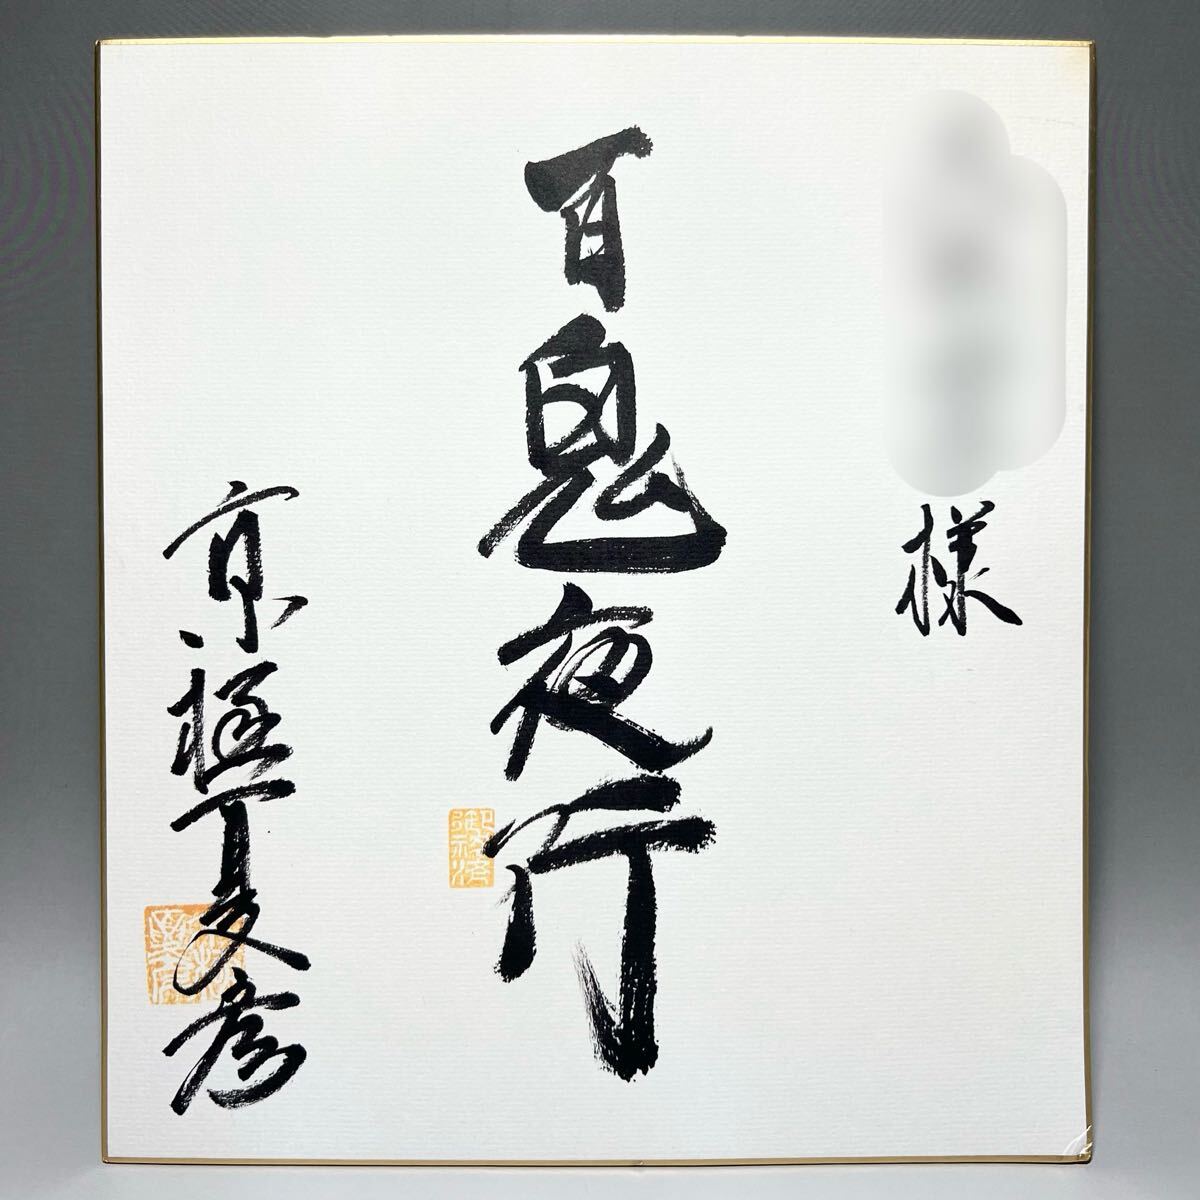 様
百鬼夜行
京極夏彦